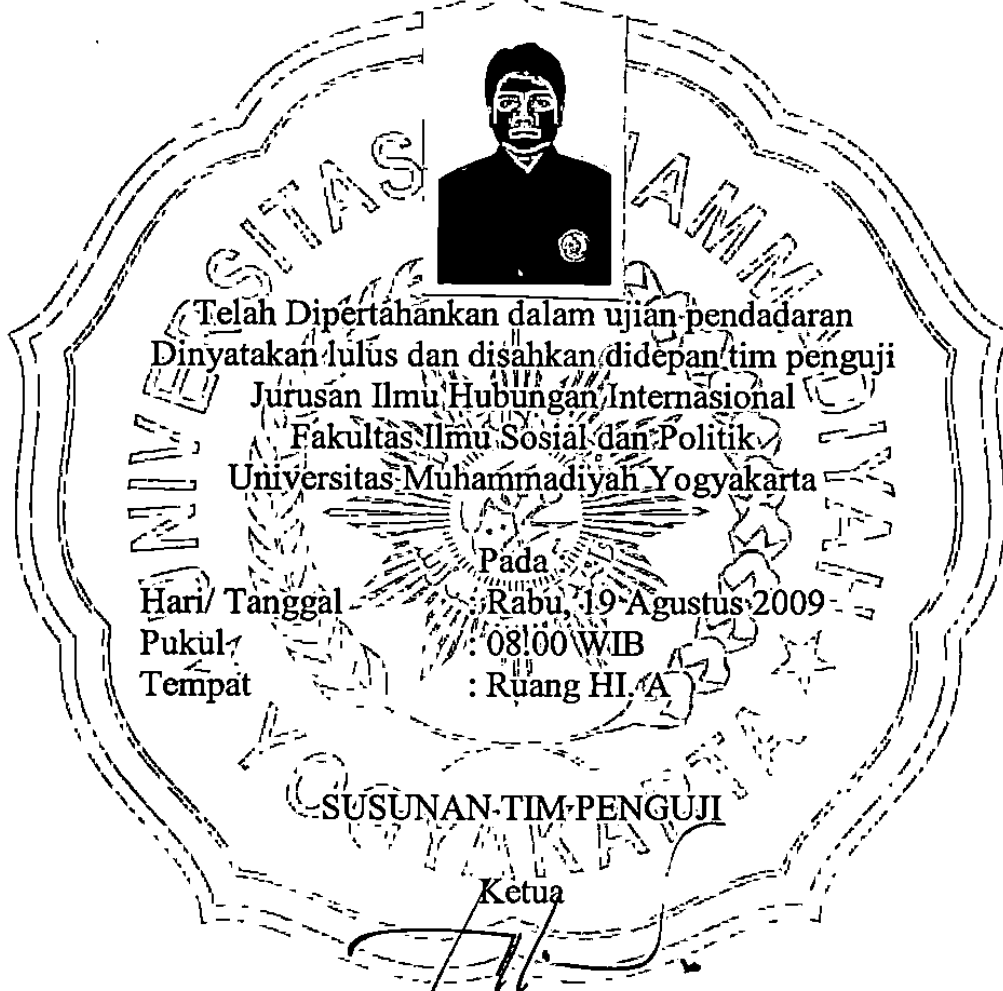 UNIVERSITAS MUHAMMADIYAH
YOGYAKARTA
Telah Dipertahankan dalam ujian pendadaran
Dinyatakan lulus dan disahkan didepan tim penguji
Jurusan Ilmu Hubungan Internasional
Fakultas Ilmu Sosial dan Politik
Universitas Muhammadiyah Yogyakarta
Pada
Hari/ Tanggal : Rabu, 19 Agustus 2009
Pukul : 08.00 WIB
Tempat : Ruang HI. A
SUSUNAN TIM PENGUJI
Ketua